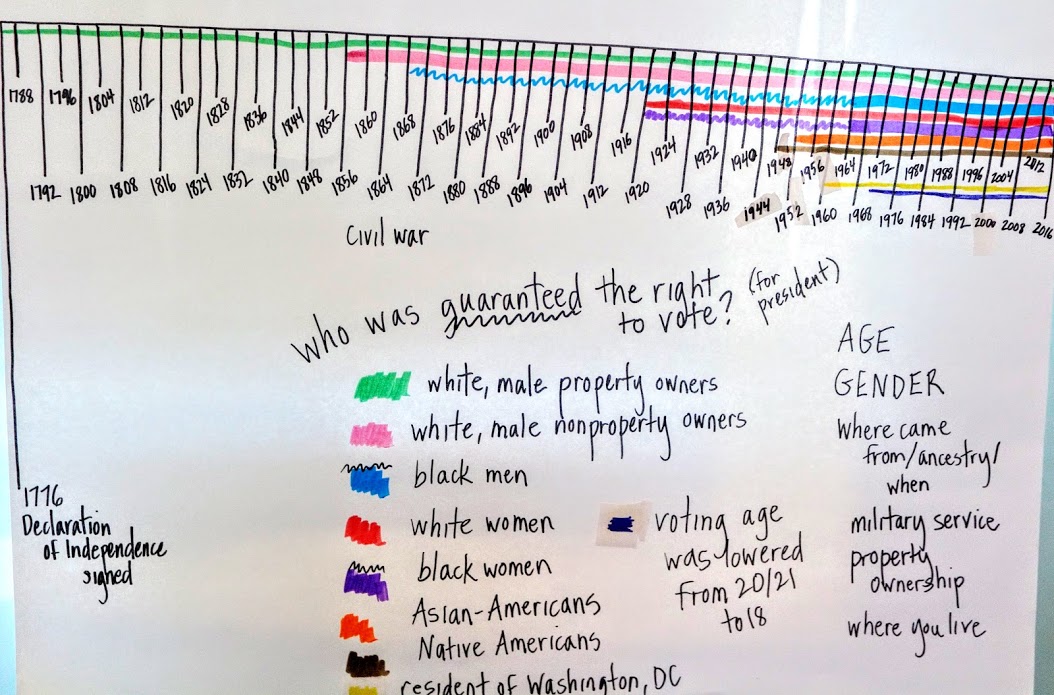 1788 1796 1804 1812 1820 1828 1836 1844 1852 1860 1868 1876 1884 1892 1900 1908 1916 1924 1932 1940 1948 1956 1964 1972 1980 1988 1996 2004 2012
1792 1800 1808 1816 1824 1832 1840 1848 1856 1864 1872 1880 1888 1896 1904 1912 1920 1928 1936 1944 1952 1960 1968 1976 1984 1992 2000 2008 2016
Civil war
who was guaranteed the right (for
to vote? president)
white, male property owners
white, male nonproperty owners
black men
white women
black women
Asian-Americans
Native Americans
resident of Washington, DC
voting age
was lowered
from 20/21
to 18
AGE
GENDER
where came
from/ancestry/
when
military service
property
ownership
where you live
1776
Declaration
of Independence
signed